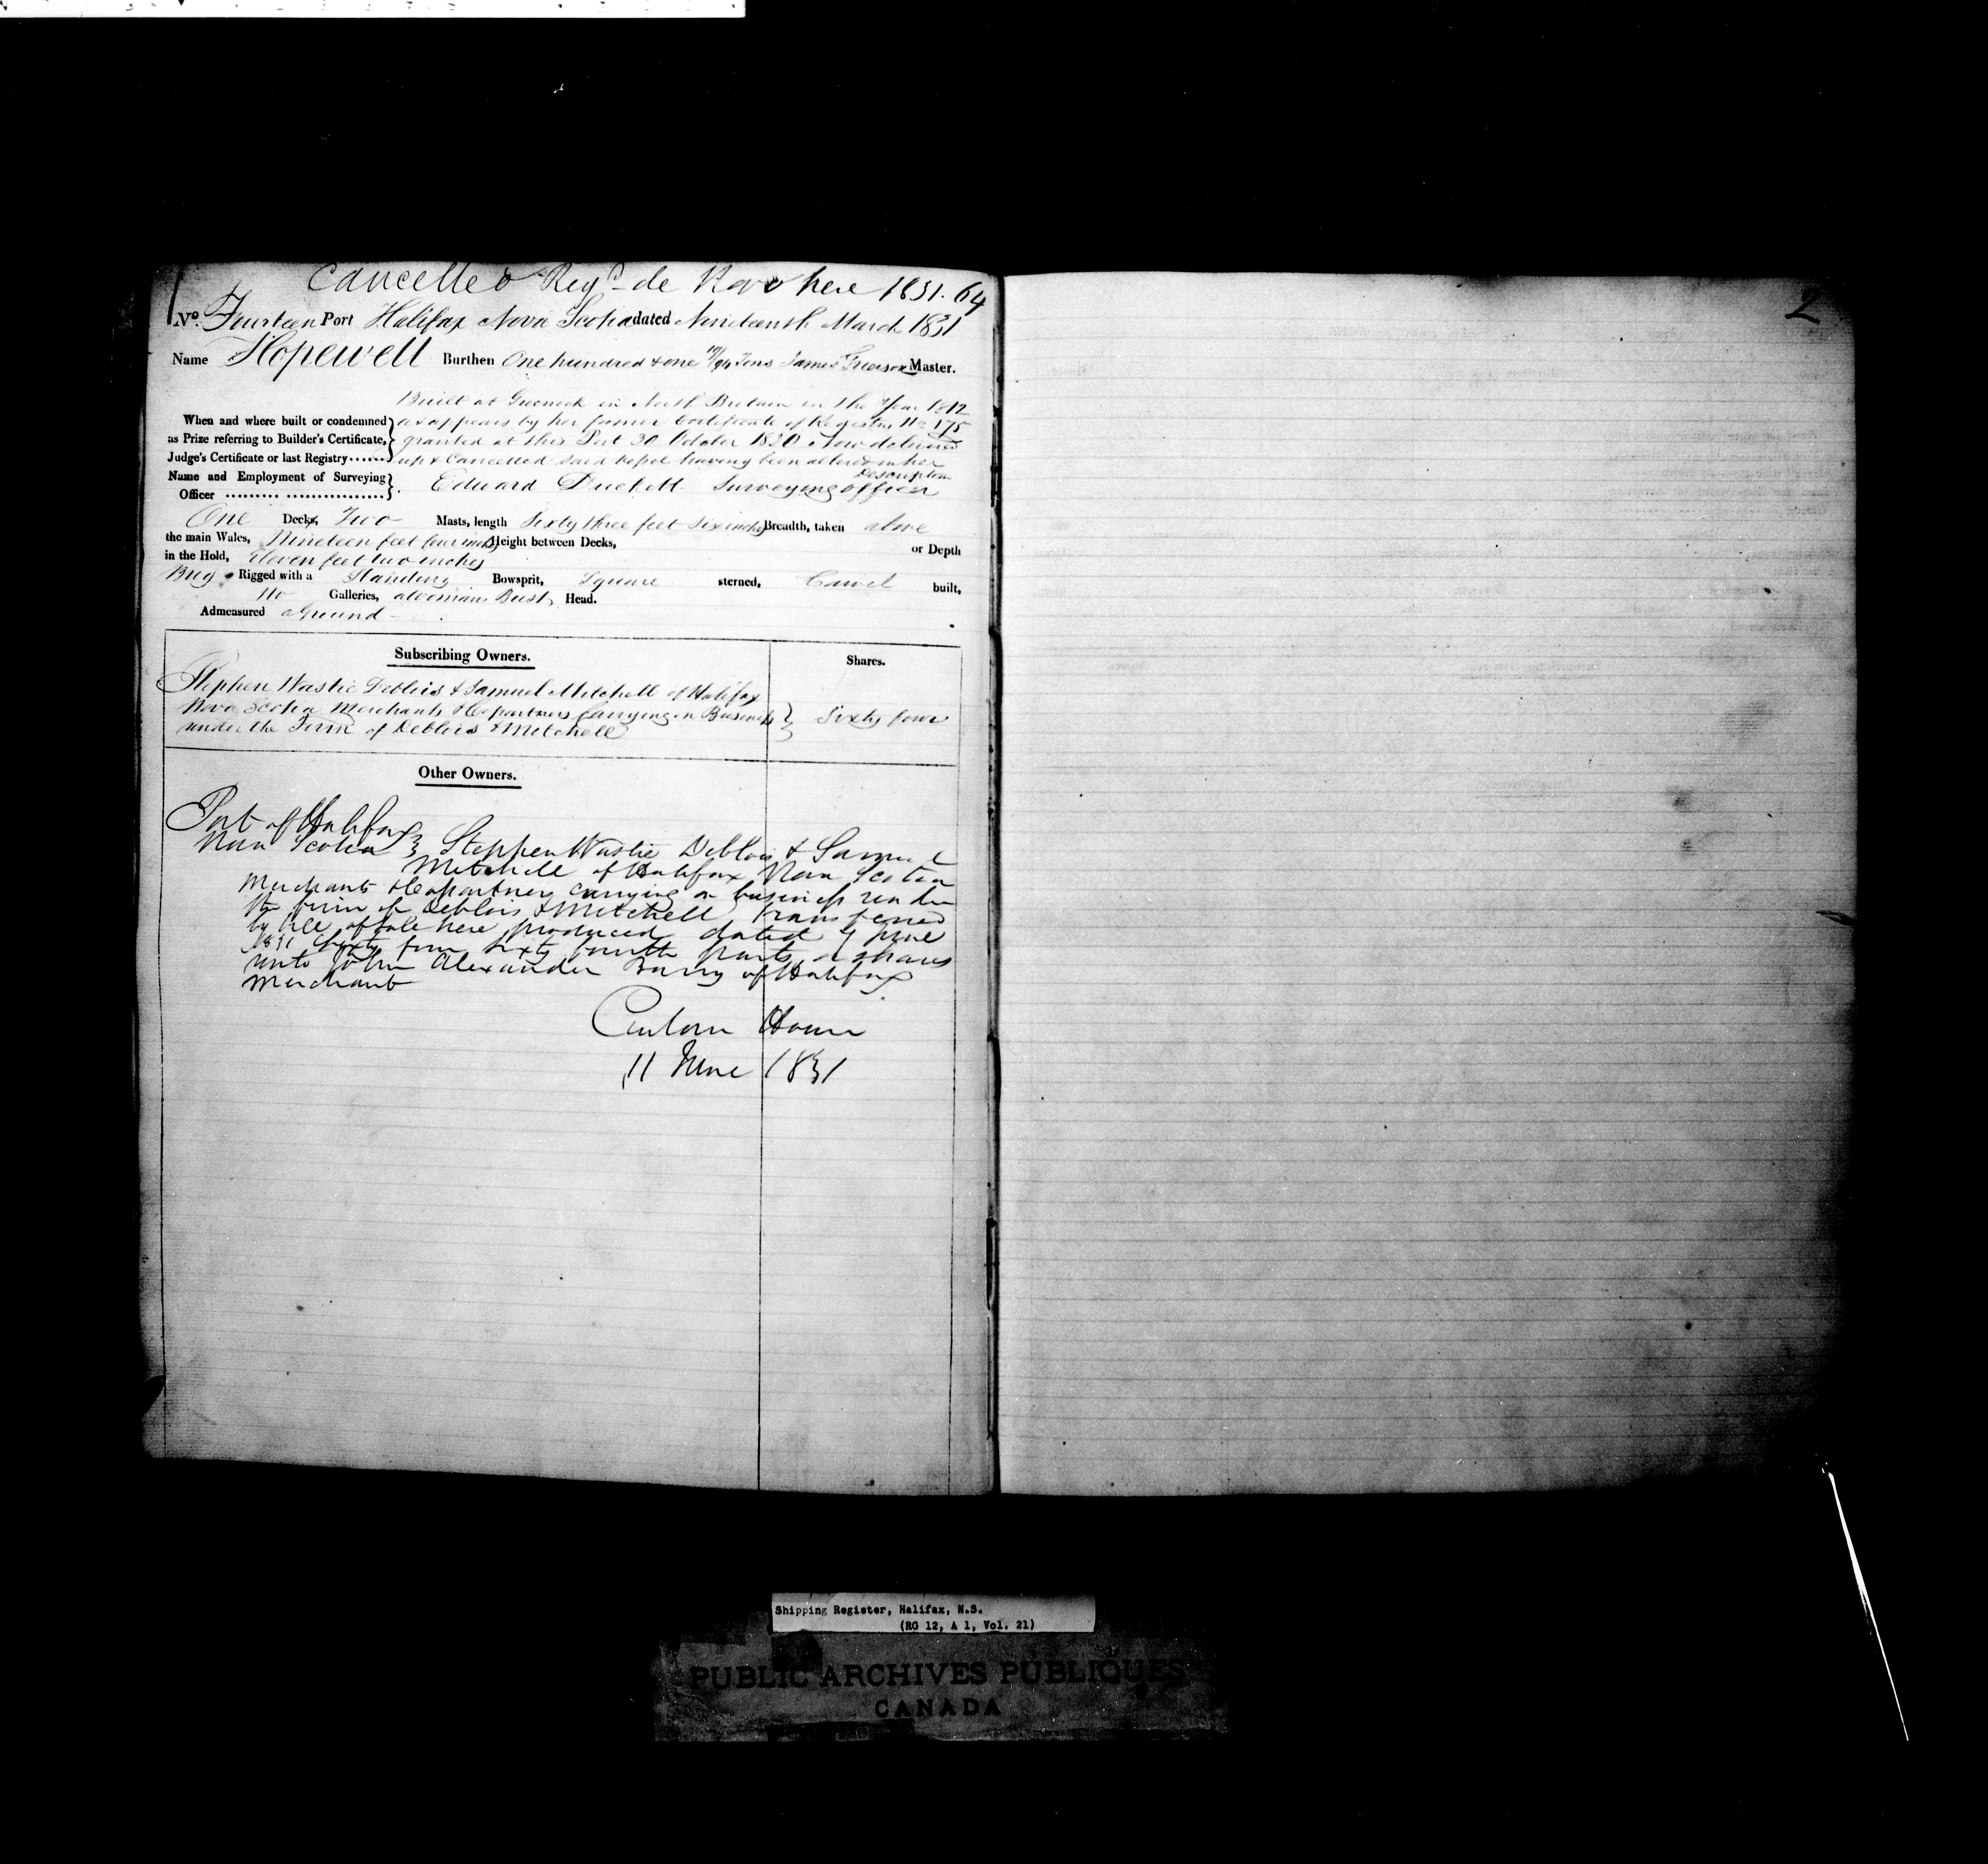 Cancelled Regd. de Novo here 1831. 64
No. Fourteen Port Halifax Nova Scotia dated Nineteenth March 1831
Name Hopewell Burthen One hundred & one 10/94 Tons James Grierson Master.
Built at Greenock in North Britain in the Year 1812
When and where built or condemned as appears by her former Certificate of Registry No. 175
as Prize referring to Builder's Certificate, granted at this Port 30 October 1830 Now delivered
Judge's Certificate or last Registry up & Cancelled said Vessel having been altered in her
Description
Name and Employment of Surveying
Officer Edward Duckett Surveying officer
One Decks, Two Masts, length Sixty three feet six inches Breadth, taken above
the main Wales, Nineteen feet four inches Height between Decks, or Depth
in the Hold, Eleven feet two inches
Brig Rigged with a Standing Bowsprit, Square sterned, Carvel built,
No Galleries, a Womans Bust Head.
Admeasured aGround
Subscribing Owners. Shares.
Stephen Wastie Deblois & Samuel Mitchell of Halifax
Nova Scotia Merchants & Copartners Carrying on Business Sixty four
under the Firm of Deblois & Mitchell
Other Owners.
Port of Halifax
Nova Scotia Stephen Wastie Deblois & Samuel
Mitchell of Halifax Nova Scotia
Merchants & Copartners carrying on business under
the firm of Deblois & Mitchell, transferred
by bill of sale here produced dated 9 June
1831 Sixty four sixty fourth parts or shares
unto John Alexander Barry of Halifax
Merchant
Custom House
11 June 1831
2
Shipping Register, Halifax, N.S.
(RG 12, A 1, Vol. 21)
PUBLIC ARCHIVES PUBLIQUES
CANADA